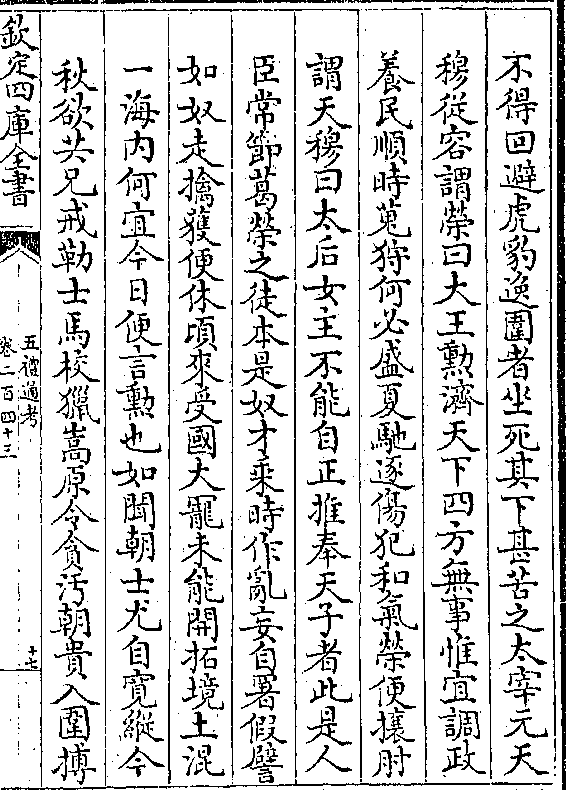 不得回避虎豹逸圍者坐死其下甚苦之太宰元天
穆從容謂榮曰大王勲濟天下四方無事惟宜調政
養民順時蒐狩何必盛夏馳逐傷犯和氣榮便攘肘
謂天穆曰太后女主不能自正推奉天子者此是人
臣常節葛榮之徒本是奴才乘時作亂妄自署假譬
如奴走擒獲便休頃來受國大寵未能開拓境土混
一海内何宜今日便言勲也如聞朝士尤自寛縱今
秋欲共兄戒勒士馬校獵嵩原令貪汚朝貴入圍搏
欽定四庫全書
五禮通考
卷二百四十三
十七